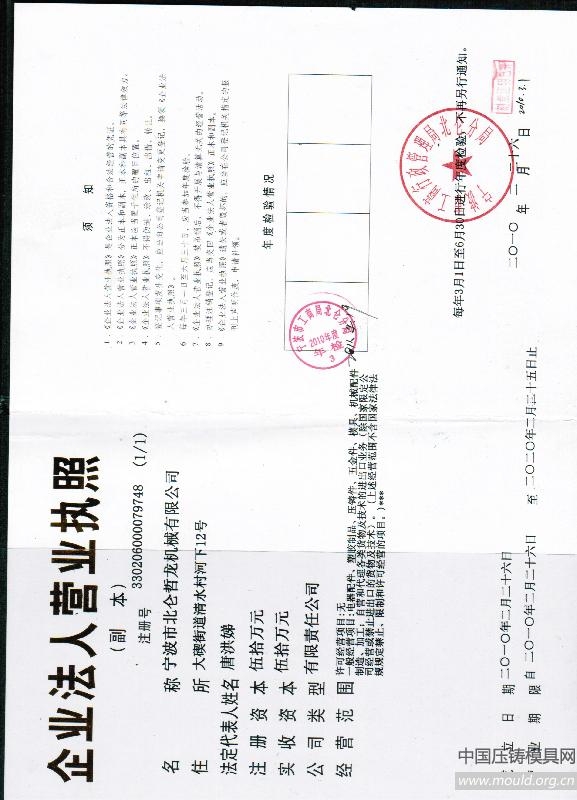 企业法人营业执照
(副 本)
注册号 330206000079748 (1/1)
名 称 宁波市北仑哲龙机械有限公司
住 所 大碶街道清水村河下12号
法定代表人姓名 唐洪娣
注册资本 伍拾万元
实收资本 伍拾万元
公司类型 有限责任公司
经营范围 许可经营项目:无
一般经营项目:电器配件、塑胶制品、压铸件、五金件、模具、机械配件
制造、加工;自营和代理各类货物及技术的进出口业务(除国家限定公
司经营或禁止进出口的货物及技术)。(上述经营范围不含国家法律法
规规定禁止、限制和许可经营的项目。)***
立 日 期 二○一○年二月二十六日
业 期 限 自 二○一○年二月二十六日 至 二○二○年二月二十五日止
须 知
1. 《企业法人营业执照》是企业法人资格和合法经营的凭证。
2. 《企业法人营业执照》分为正本和副本,正本和副本具有同等法律效力。
3. 《企业法人营业执照》正本应当置于住所的醒目位置。
4. 《企业法人营业执照》不得伪造、涂改、出租、出借、转让。
5. 登记事项发生变化,应当向公司登记机关申请变更登记,换领《企业法
人营业执照》。
6. 每年三月一日至六月三十日,应当参加年度检验。
7. 《企业法人营业执照》被吊销后,不得开展与清算无关的经营活动。
8. 办理注销登记,应当交回《企业法人营业执照》正本和副本。
9. 《企业法人营业执照》遗失或者毁坏的,应当在公司登记机关指定的报
刊上声明作废,申请补领。
年度检验情况
宁波市工商局北仑分局
2010年度
年检
3
每年3月1日至6月30日进行年度检验,不再另行通知。
二○一○ 年 二 月 二十六 日
2010.3.1
中国压铸模具网
www.mould.org.cn